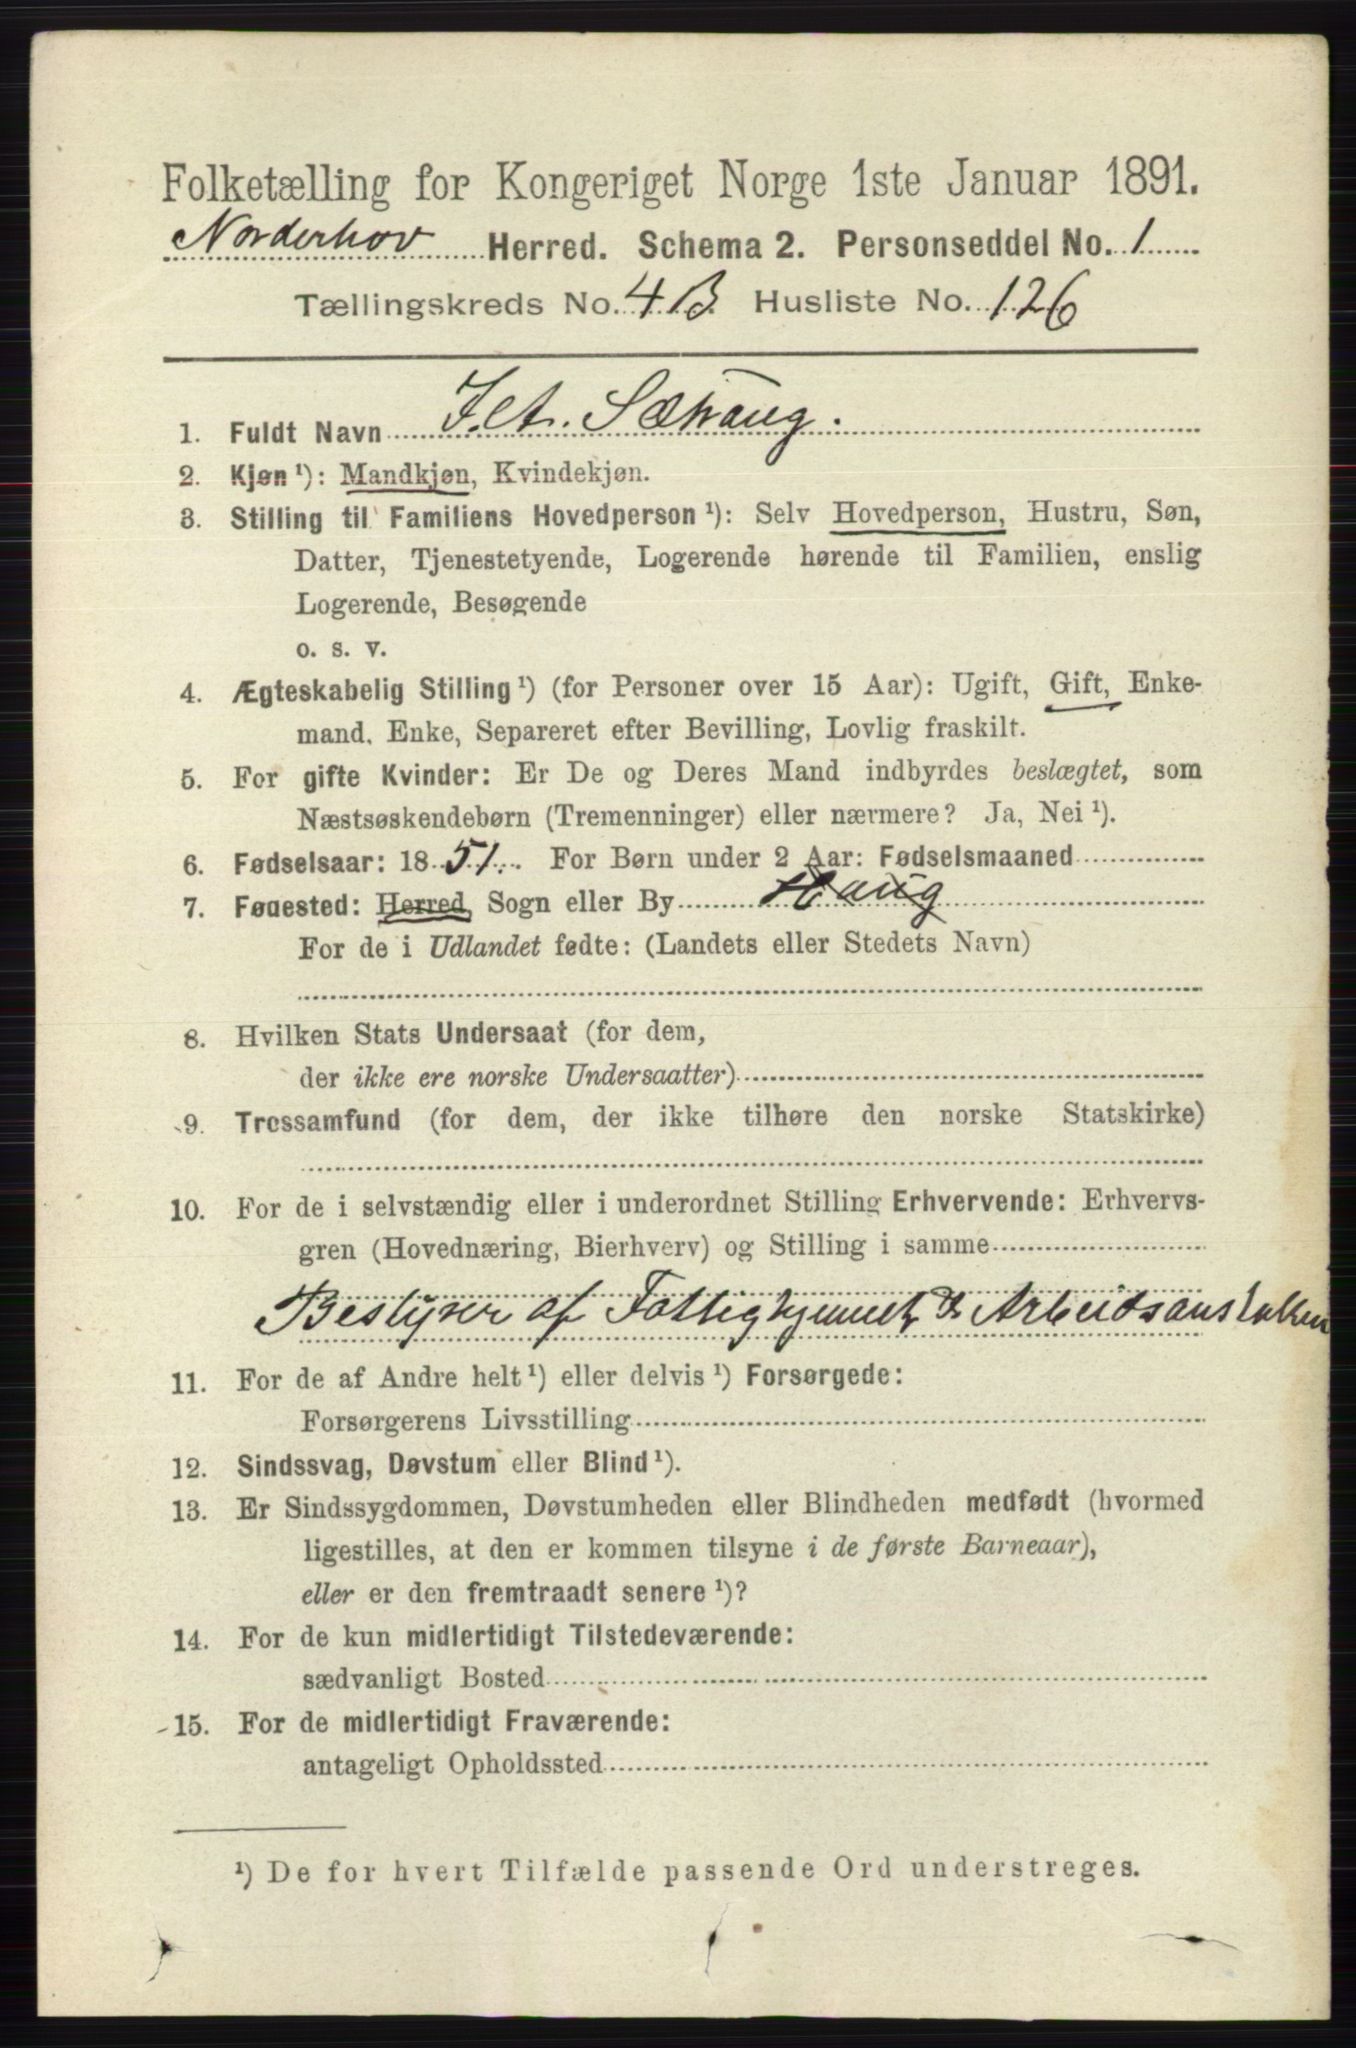 Folketælling for Kongeriget Norge 1ste Januar 1891.
Norderhov Herred. Schema 2. Personseddel No. 1
Tællingskreds No. 4B. Husliste No. 126
1. Fuldt Navn
2. Kjøn ¹): Mandkjøn, Kvindekjøn.
3. Stilling til Familiens Hovedperson ¹): Selv Hovedperson, Hustru, Søn,
Datter, Tjenestetyende, Logerende hørende til Familien, enslig
Logerende, Besøgende
o. s. v.
4. Ægteskabelig Stilling ¹) (for Personer over 15 Aar): Ugift, Gift, Enke-
mand, Enke, Separeret efter Bevilling, Lovlig fraskilt.
5. For gifte Kvinder: Er De og Deres Mand indbyrdes beslægtet, som
Næstsøskendebørn (Tremenninger) eller nærmere? Ja, Nei ¹).
6. Fødselsaar: 1851. For Børn under 2 Aar: Fødselsmaaned
7. Fødested: Herred, Sogn eller By Haug
For de i Udlandet fødte: (Landets eller Stedets Navn)
8. Hvilken Stats Undersaat (for dem,
der ikke ere norske Undersaatter)
9. Trossamfund (for dem, der ikke tilhøre den norske Statskirke)
10. For de i selvstændig eller i underordnet Stilling Erhvervende: Erhvervs-
gren (Hovednæring, Bierhverv) og Stilling i samme
Bestyrer af Fattighjemmet & Arbeidsanstalten
11. For de af Andre helt ¹) eller delvis ¹) Forsørgede:
Forsørgerens Livsstilling
12. Sindssvag, Døvstum eller Blind ¹).
13. Er Sindssygdommen, Døvstumheden eller Blindheden medfødt (hvormed
ligestilles, at den er kommen tilsyne i de første Barneaar),
eller er den fremtraadt senere ¹)?
14. For de kun midlertidigt Tilstedeværende:
sædvanligt Bosted
15. For de midlertidigt Fraværende:
antageligt Opholdssted
¹) De for hvert Tilfælde passende Ord understreges.